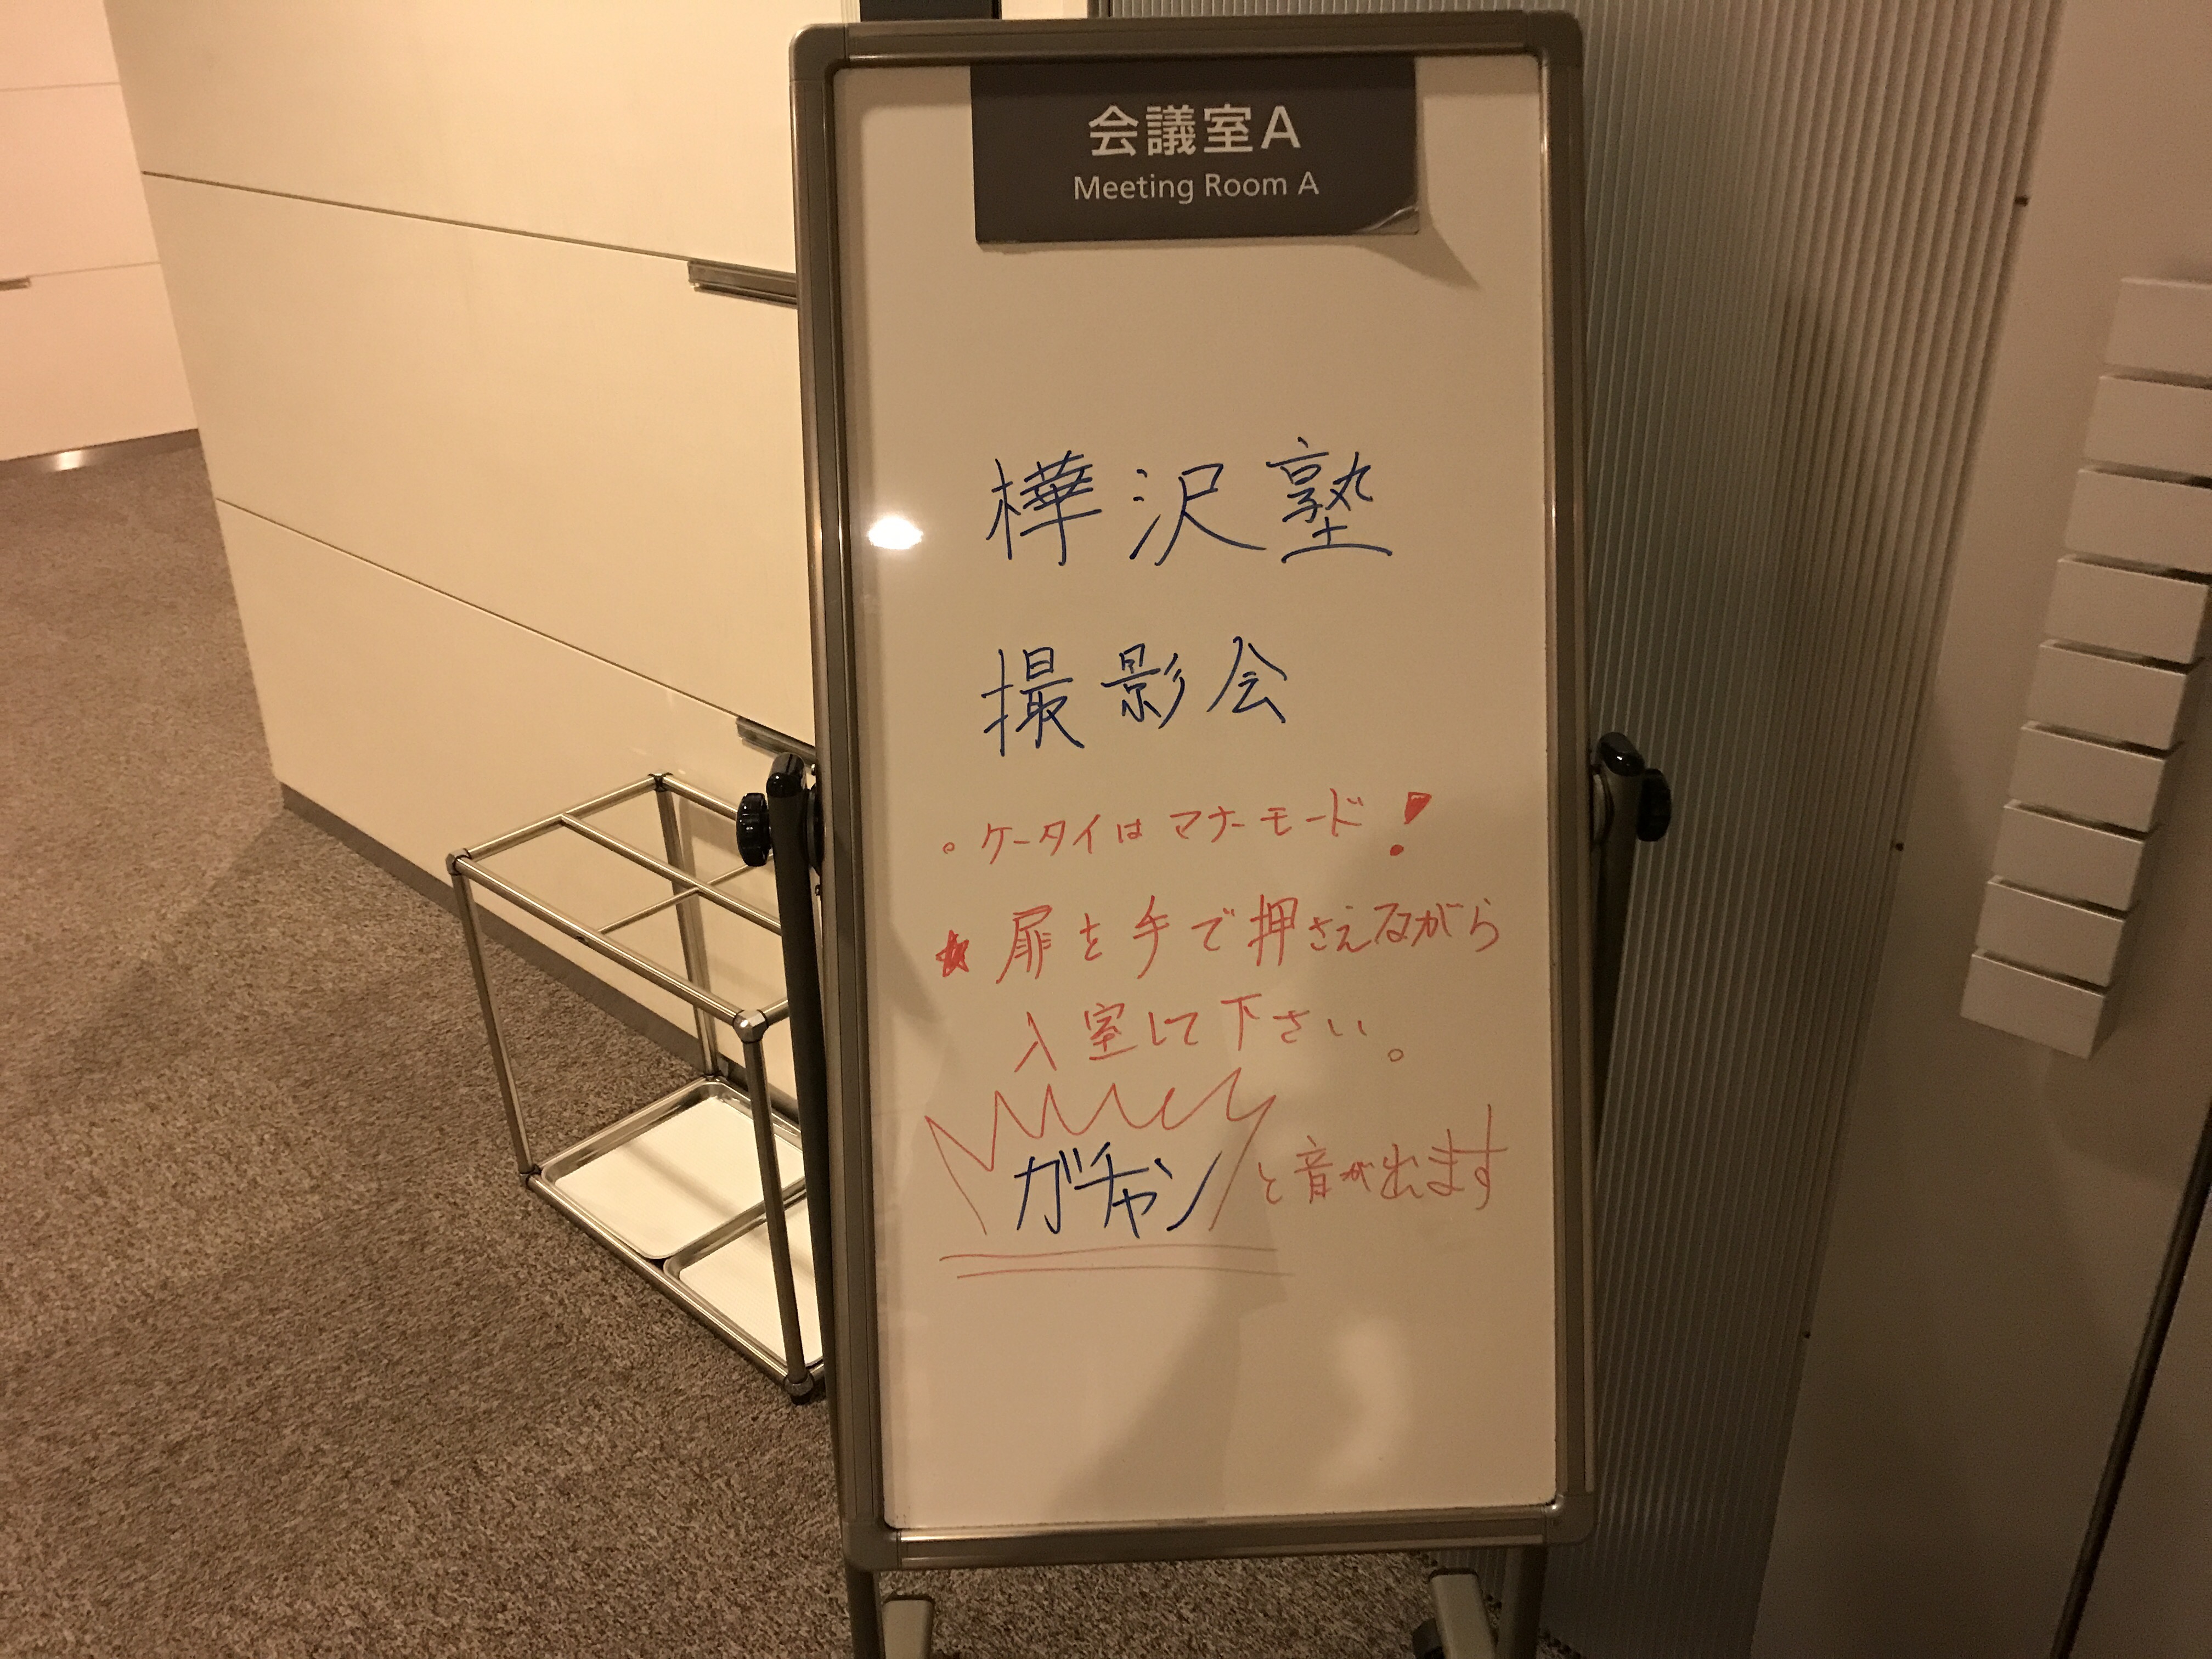 会議室A
Meeting Room A
樺沢塾
撮影会
。ケータイはマナーモード!
★扉を手で押さえながら
入室して下さい。
ガチャンと音が出ます